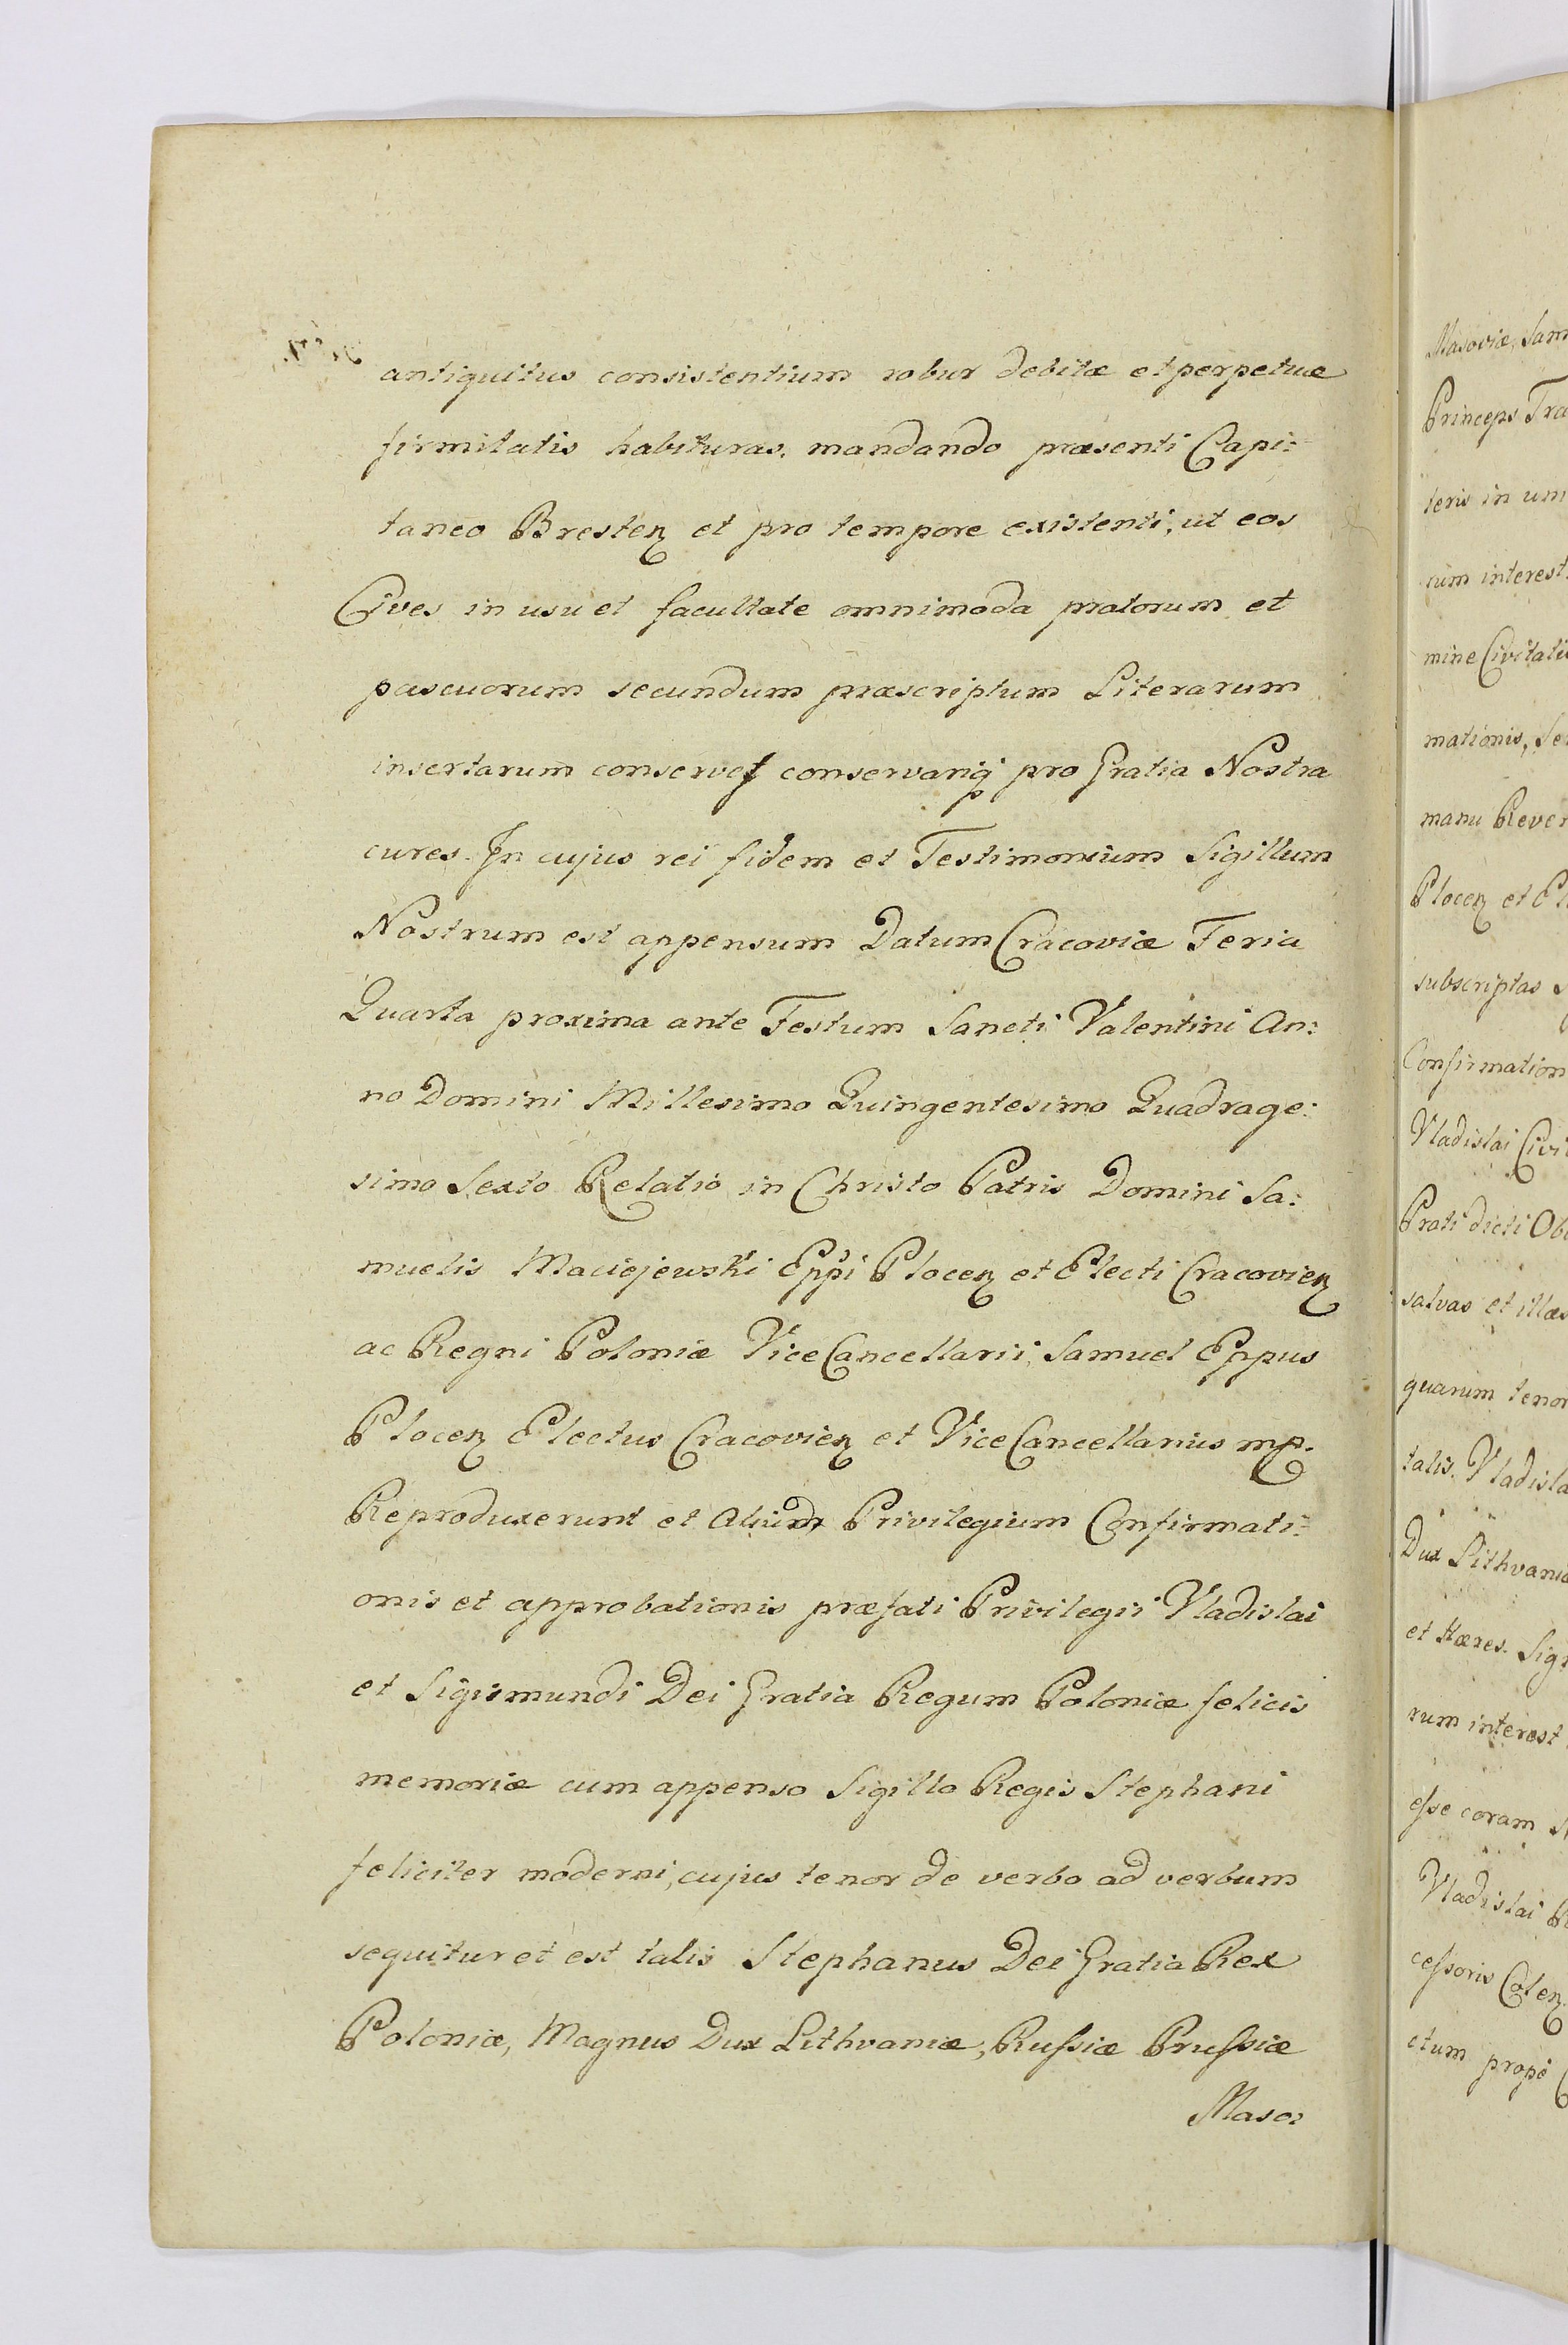 antiquitus consistentium robur debitæ et perpetuæ
firmitatis habituras, mandando præsenti Capi:
taneo Bresteꝶ et pro tempore existenti, ut eos
Cives in usu et facultate omnimoda pratorum et
pascuorum secundum præscriptum Literarum
insertarum conserves conservariq pro Gratia Nostra
cures. In cujus rei fidem et Testimonium Sigillum
Nostrum est appensum Datum Cracoviæ Feria
Quarta proxima ante Festum Sancti Valentini An:
no Domini Millesimo Quingentesimo Quadrage:
simo Sexto Relatio in Christo Patris Domini Sa:
muelis Maciejewski Eppi Ploceꝶ et Electi Cracovieꝶ
ac Regni Poloniæ ViceCancellarii, Samuel Eppus
Ploceꝶ Electus Cracovieꝶ et ViceCancellarius mp.
Reproduxerunt et Aliud Privilegium Confirmati:
onis et approbationis præfati Privilegii Vladislai
et Sigismundi Dei Gratia Regum Poloniæ felicis
memoriæ cum appenso Sigillo Regis Stephani
feliciter moderni, cujus tenor de verbo ad verbum
sequitur et est talis Stephanus Dei Gratia Rex
Poloniæ, Magnus Dux Lithvaniæ, Russiæ Prussiæ
Maso:
Masoviæ, Sam
Princeps Tra
teris in uni
rum interest
mine Civitatis
mationis, Se
manu Rever
Ploceꝶ et El
subscriptas
Confirmation
Vladislai Civi
Prati dicti Ob
salvas et illæs
quarum tenor
talis. Vladisla
Dux Lithvaniæ
et Hæres. Sig
rum interest
esse coram N
Vladislai R
cessoris Coleꝶ
ctum prope C